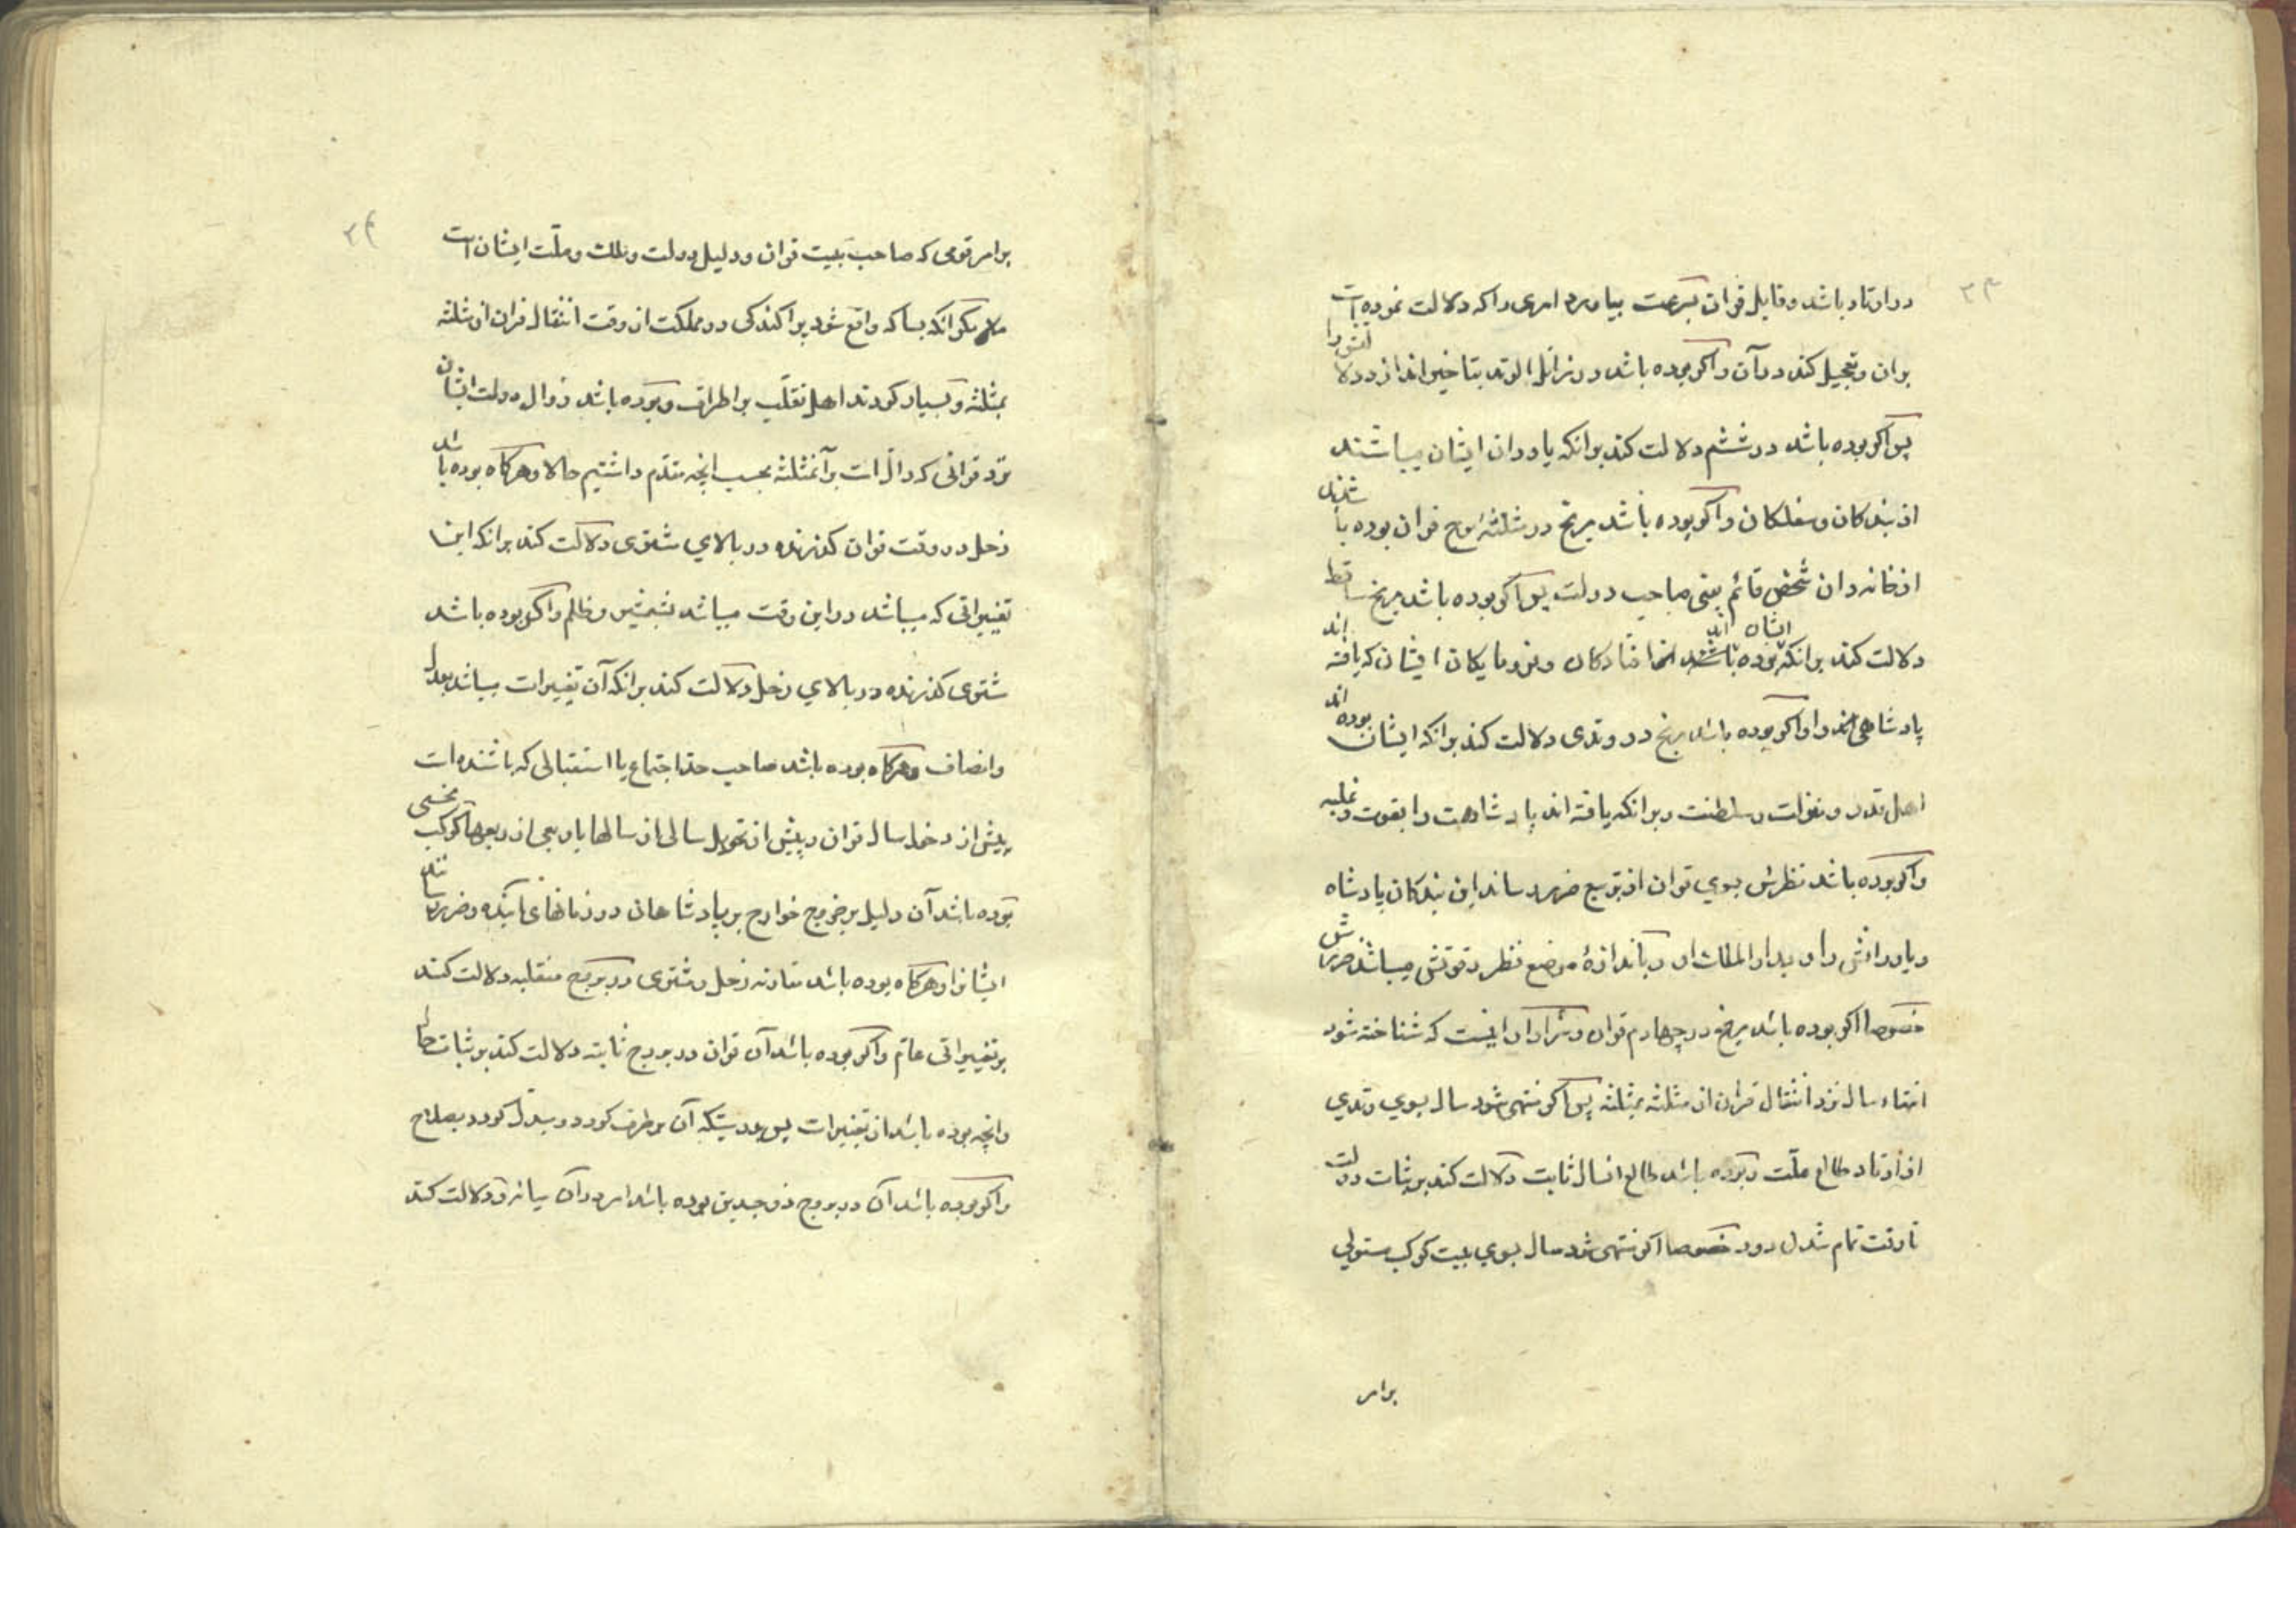 در اوتاد باشد و قابل قران بسرعت بیاورد امری را که دلالت نموده است
بران و تعجیل کند در آن و اگر بوده باشد در زائل الوتد بتاخیر اندازد دلالتش را
پس اگر بوده باشد در ششم دلالت کند برانکه یاوران ایشان میباشند
از بندکان و سفلکان و اگر بوده باشد مریخ در مثلثه برج قران بوده باشند
از خانه دان شخص قائم یعنی صاحب دولت پس اگر بوده باشد مریخ ساقط
دلالت کند برانکه ایشان بوده اند از افتادکان و فرومایکان ایشان که یافته اند
پادشاهی را و اگر بوده باشد مریخ در وتدی دلالت کند برانکه ایشان بوده اند
اهل قدر و سلطنت و برانکه یافته اند پادشاهت را بقوت و غلبه
و اگر بوده باشد نظرش بسوی قران از تربیع ضرر رساند این بندکان پادشاه
و یاورانش را و بدار الملک او و باندازهٔ موضع نظر و قوتش میباشد ضررش
خصوصا اگر بوده باشد مریخ در چهارم قران و سزاوار اینست که شناخته شود
انتهاء سال نزد انتقال قران از مثلثه بمثلثه پس اگر منتهی شود سال بسوی وتدی
از اوتاد طالع ملّت و بوده باشد طالع انسال ثابت دلالت کند بر ثبات دولت
تا وقت تمام شدن دور خصوصا اگر منتهی شود سال بسوی بیت کوکب مستولی
برامر
۲۴
برامر قومی که صاحب بیت قران و دلیل دولت و ملک و ملّت ایشان است
مکر انکه بسا که واقع شود پراکندکی در مملکت از وقت انتقال قران از مثلثه
بمثلثه و بسیار کردند اهل تغلّب بر اطراف و بوده باشد زوال دولت ایشان
نزد قرانی که دالّ است بر آنمثلثه بحسب انچه مقدّم داشتیم حالا و هرکاه بوده باشد
زحل در وقت قران کذرنده در بالای مشتری دلالت کند برانکه این
تغییراتی که میباشد در این وقت میباشد بشمشیر و ظلم و اگر بوده باشد
مشتری کذرنده در بالای زحل دلالت کند برانکه آن تغییرات میباشد بعدل
و انصاف و هرکاه بوده باشد صاحب حدّ اجتماع یا استقبالی که باشنده است
پیش از دخول سال قران و پیش از تحویل سالی از سالها یا ربعی از ربعها کوکب نحسی
بوده باشد آن دلیل بر خروج خوارج بر پادشاهان در زمانهای آینده و ضرر رسانند
ایشانرا و هرکاه بوده باشد مقارنه زحل و مشتری در بروج منقلبه دلالت کند
بر تغییراتی عامّ و اگر بوده باشد آن قران در بروج ثابته دلالت کند بر ثبات حال
و انچه بوده باشد از تغییرات پس بدرستیکه آن برطرف کردد و بدل کردد بصلاح
و اگر بوده باشد آن در بروج ذو جسدین بوده باشد امر در آن میانه و دلالت کند